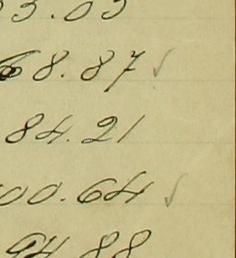 3.03
68.87 ✓
84.21
00.64 ✓
94.88